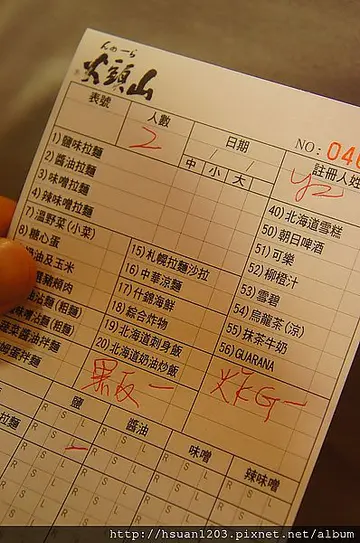 んのーら
火頭山
表號
人數
日期
NO: 040
2
中 小 大
註冊人姓
1) 鹽味拉麵
2) 醬油拉麵
3) 味噌拉麵
4) 辣味噌拉麵
7) 溫野菜(小菜)
8) 糖心蛋
奶油及玉米
豬頰肉
沾麵(粗麵)
味噌沾麵(粗麵)
蔬菜醬油拌麵
拌麵
15) 札幌拉麵沙拉
16) 中華涼麵
17) 什錦海鮮
18) 綜合炸物
19) 北海道刺身飯
20) 北海道奶油炒飯
40) 北海道雪糕
50) 朝日啤酒
51) 可樂
52) 柳橙汁
53) 雪碧
54) 烏龍茶(涼)
55) 抹茶牛奶
56) GUARANA
黑板 一
炸G 一
鹽
醬油
味噌
辣味噌
拉麵
R S L
http://hsuan1203.pixnet.net/album